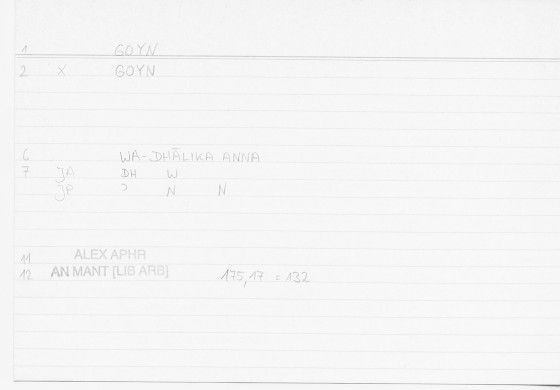 1 GOYN
2 X GOYN
6 WA-DHĀLIKA ANNA
7 JA DH W
JP ʾ N N
11 ALEX APHR
12 AN MANT [LIB ARB] 175,17 = 132